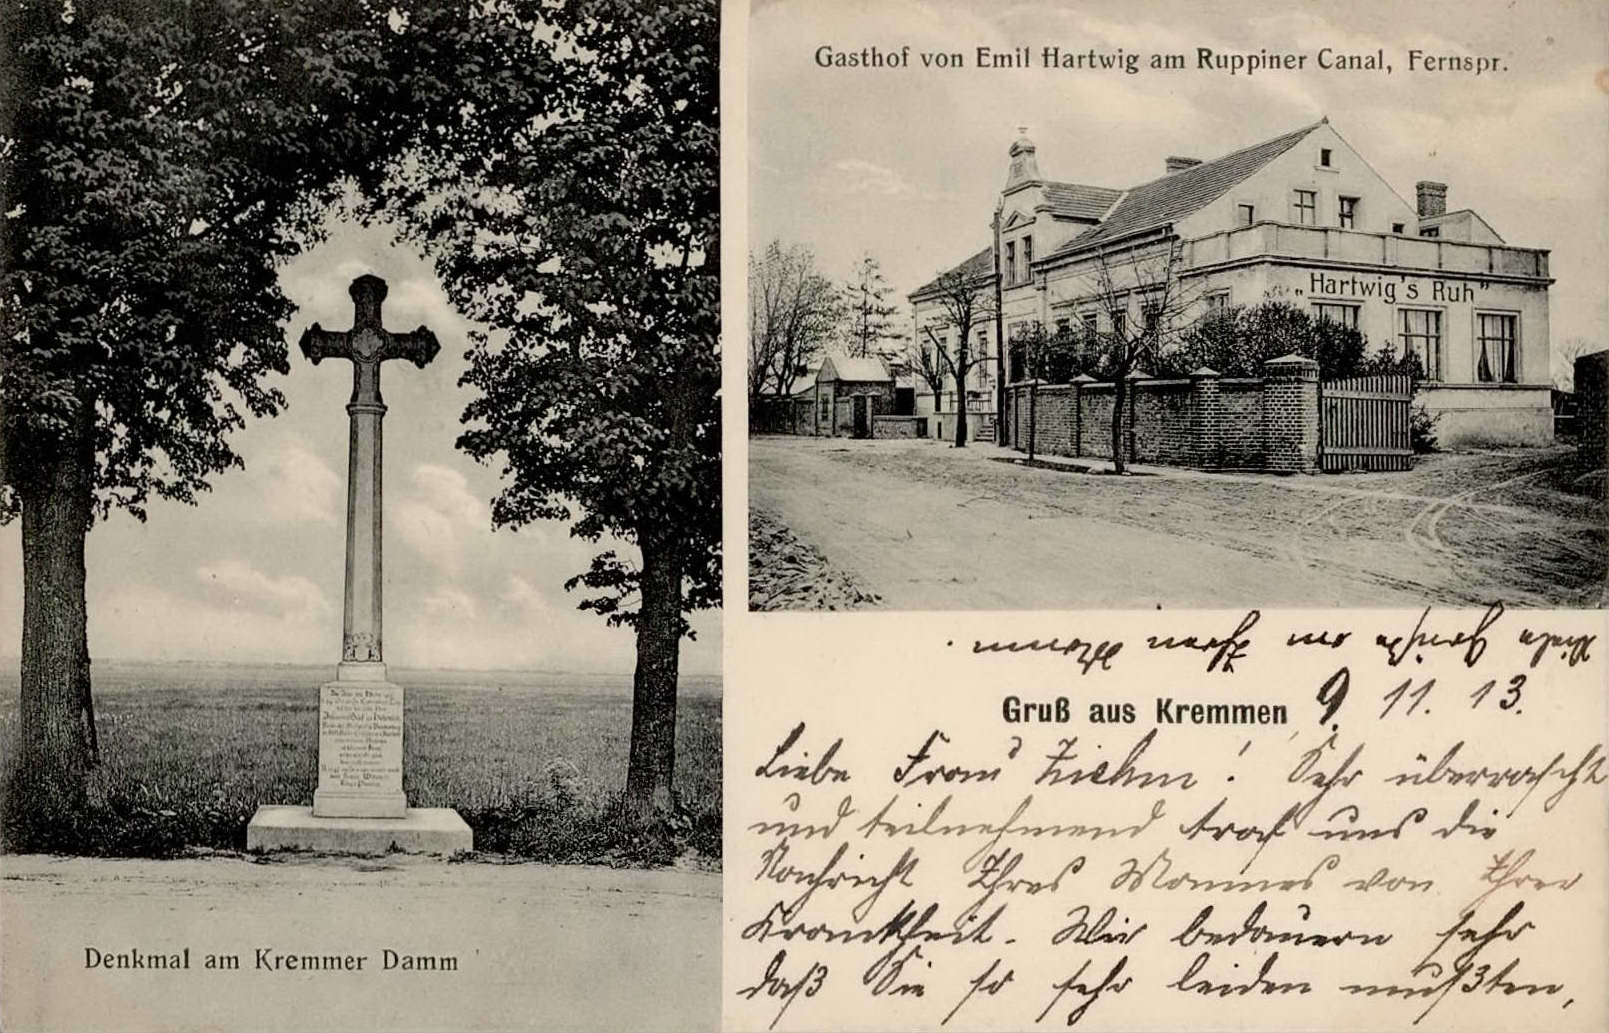 Gasthof von Emil Hartwig am Ruppiner Canal, Fernspr.
„Hartwig's Ruh"
Denkmal am Kremmer Damm
Viele Grüße an Ihren Mann.
Gruß aus Kremmen 9. 11. 13.
Liebe Frau Ziehm! Sehr überrascht
und teilnehmend traf uns die
Nachricht Ihres Mannes von Ihrer
Krankheit. Wir bedauern sehr
daß Sie so sehr leiden mußten,